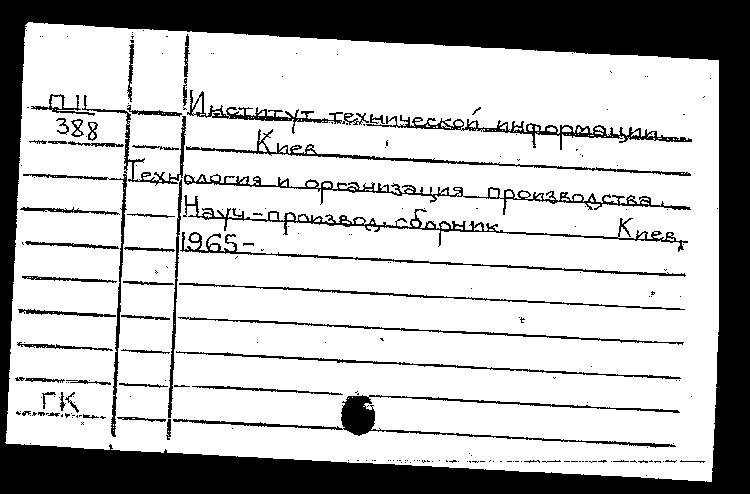 П II
388
Институт технической информации.
Киев
Технология и организация производства.
Науч.-производ. сборник Киев,
1965-
ГК